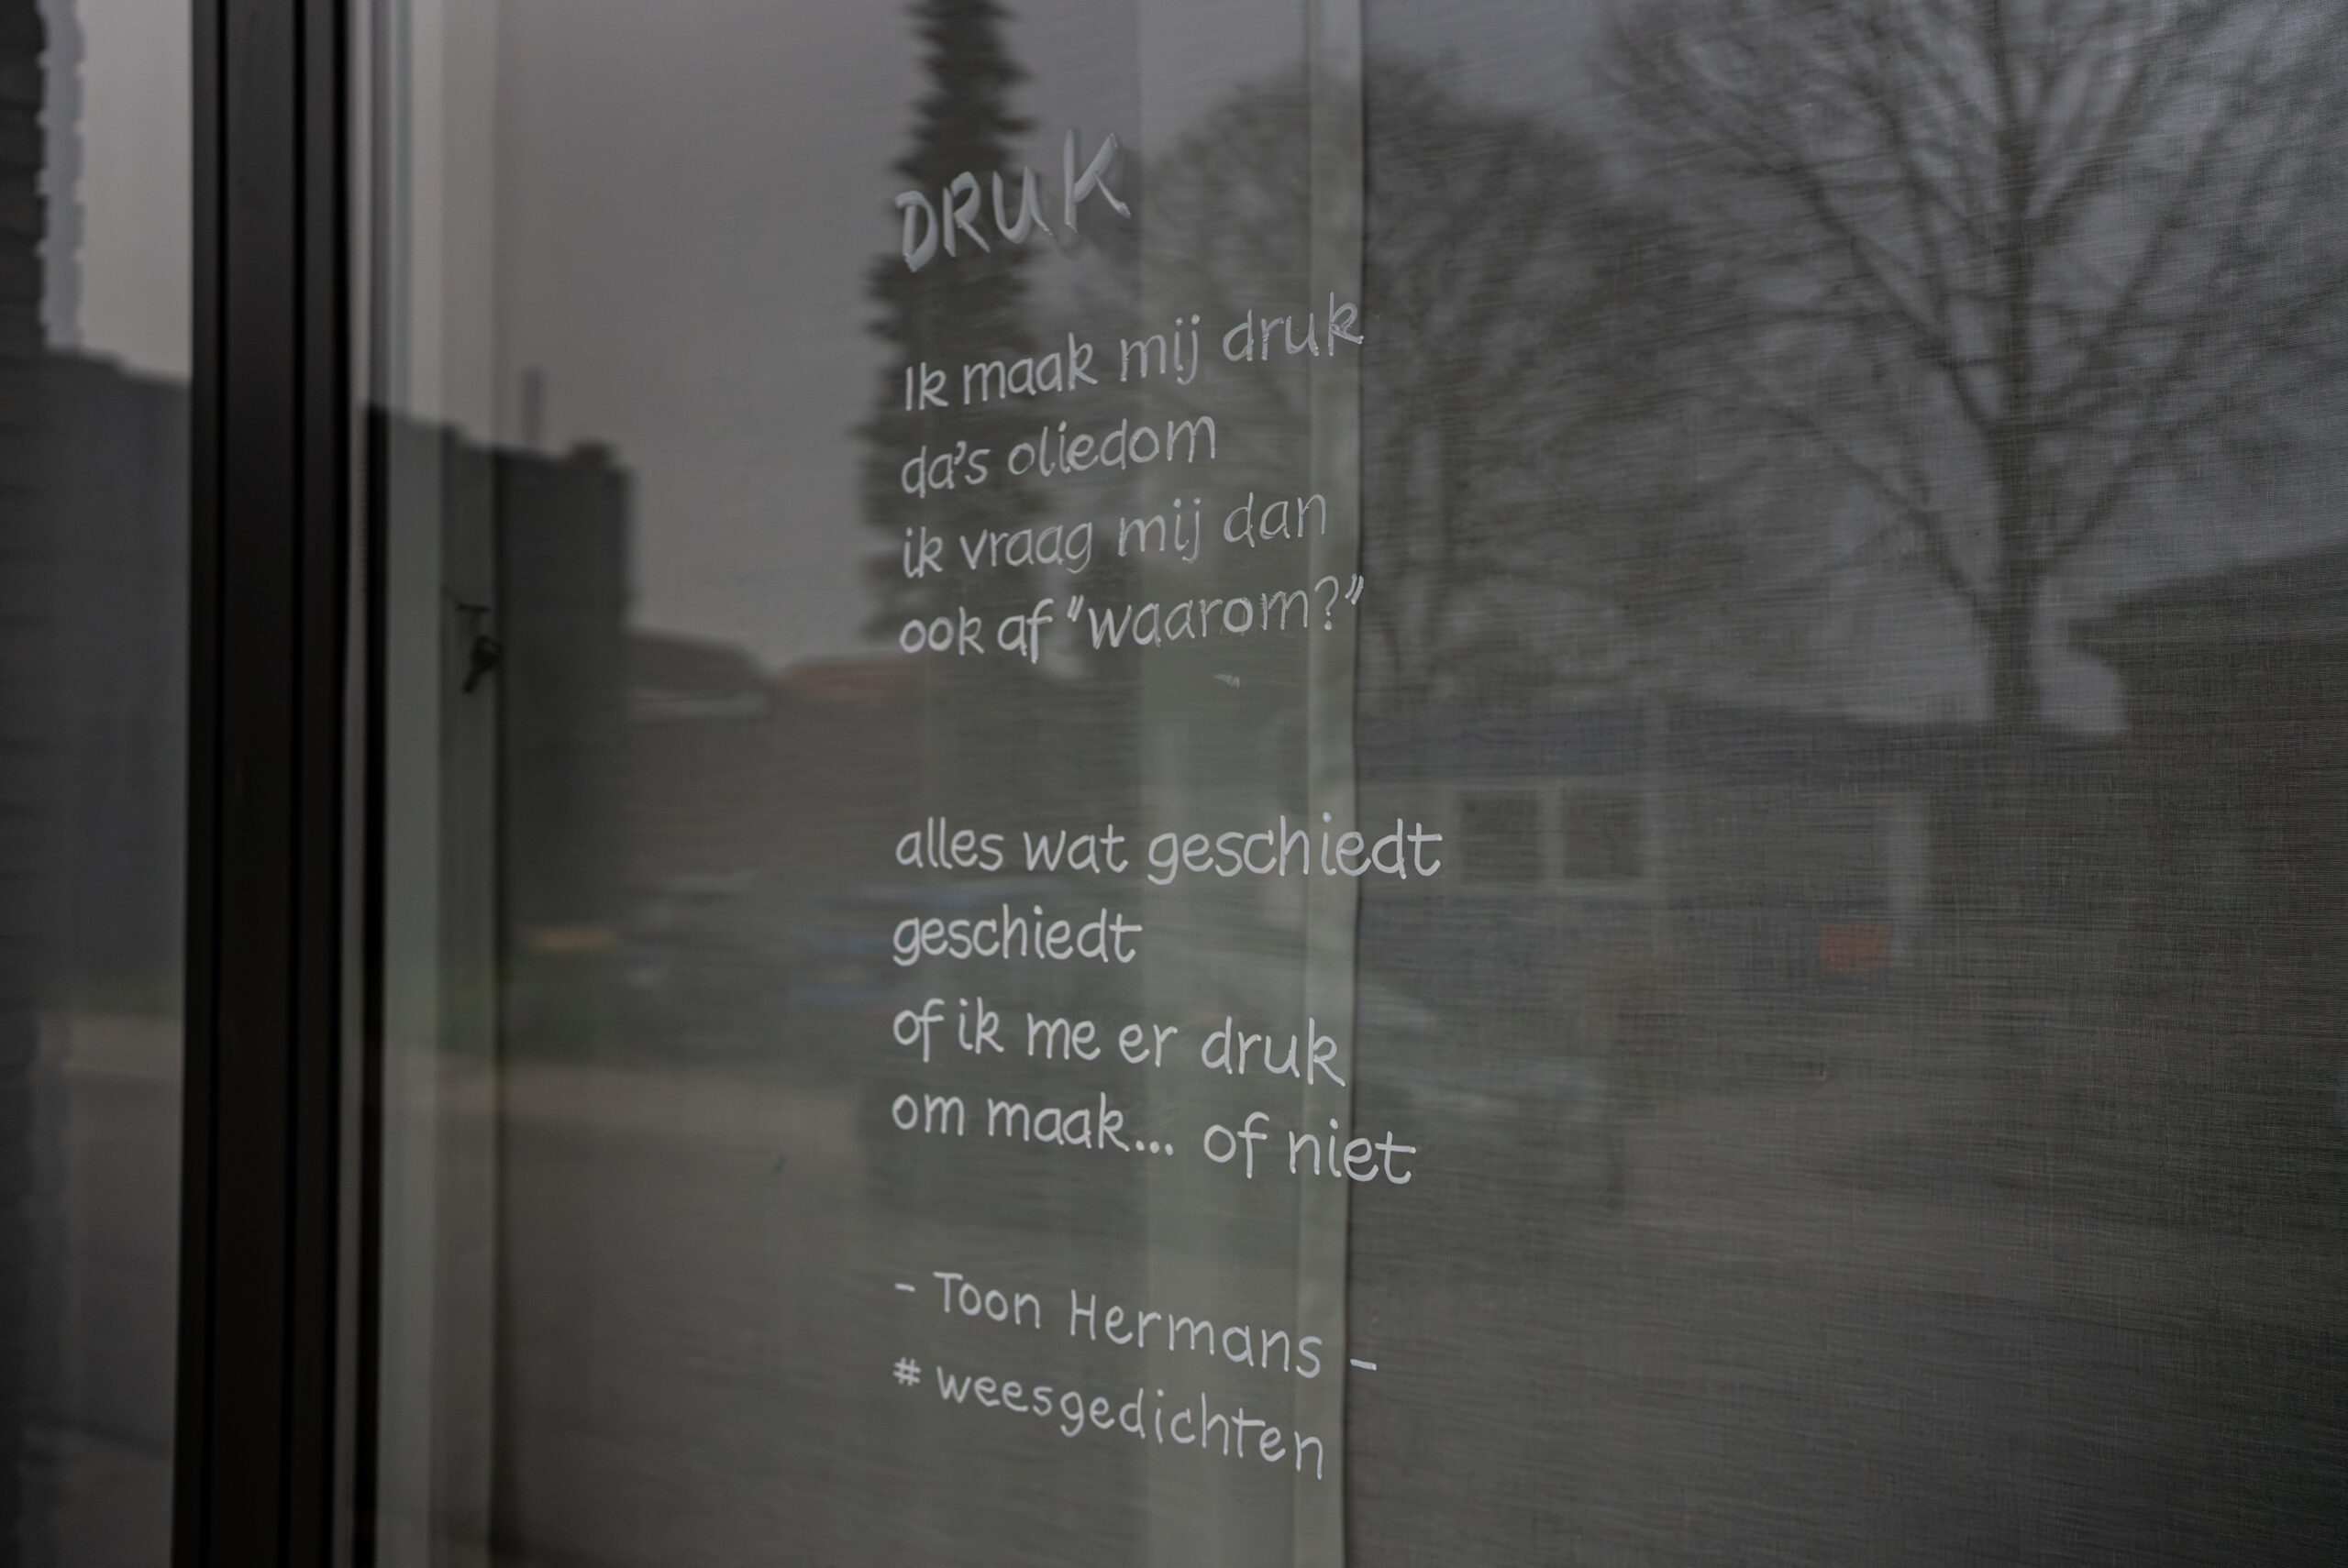 DRUK
Ik maak mij druk
da's oliedom
ik vraag mij dan
ook af "waarom?"
alles wat geschiedt
geschiedt
of ik me er druk
om maak... of niet
- Toon Hermans -
# weesgedichten